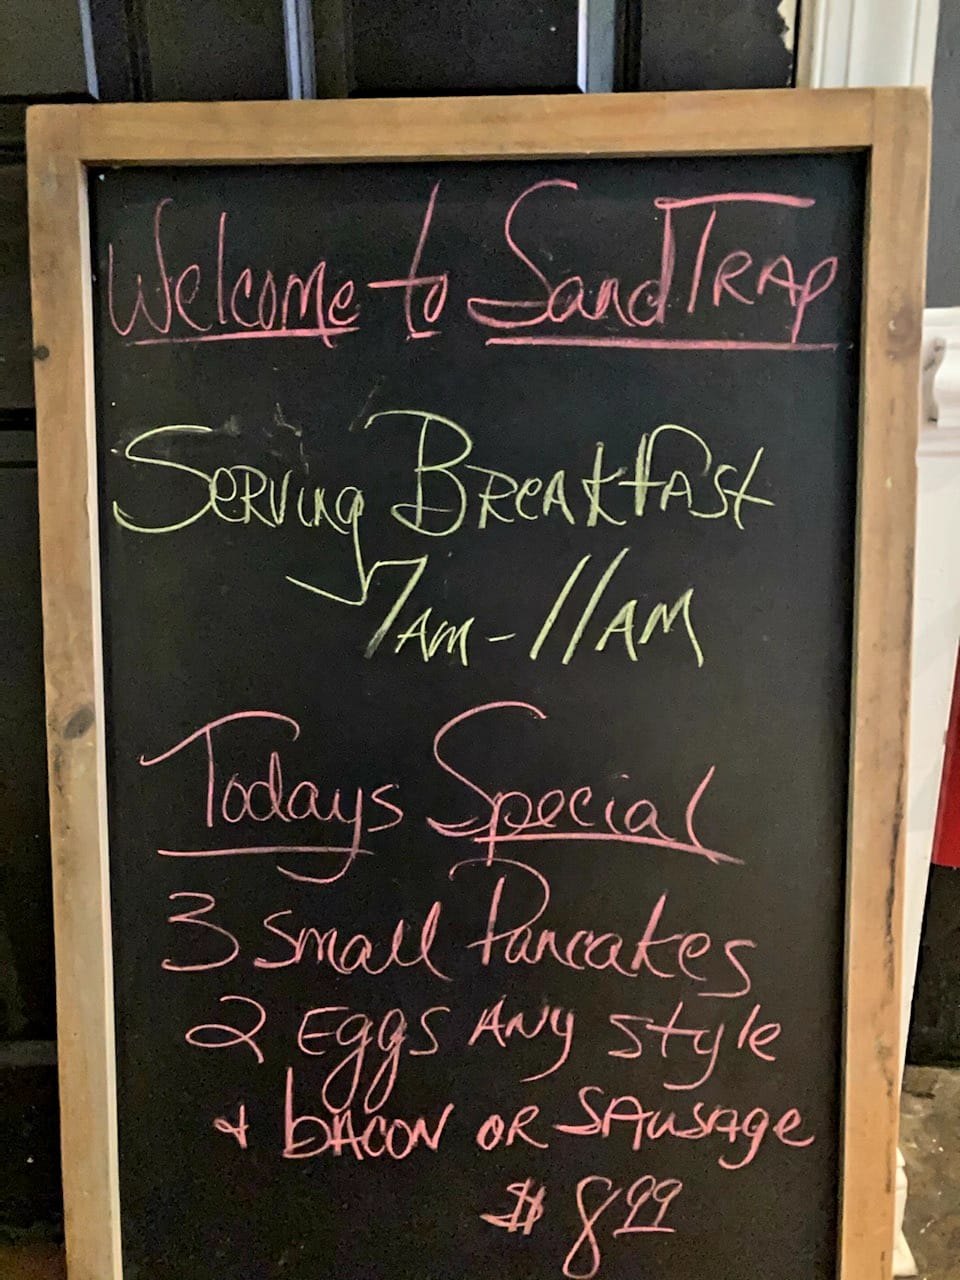 Welcome to SandTRAP
SeRVing BReAkfASt
7AM - 11AM
Todays Special
3 Small Pancakes
2 Eggs ANy Style
+ bACON OR SAusage
$ 8.99